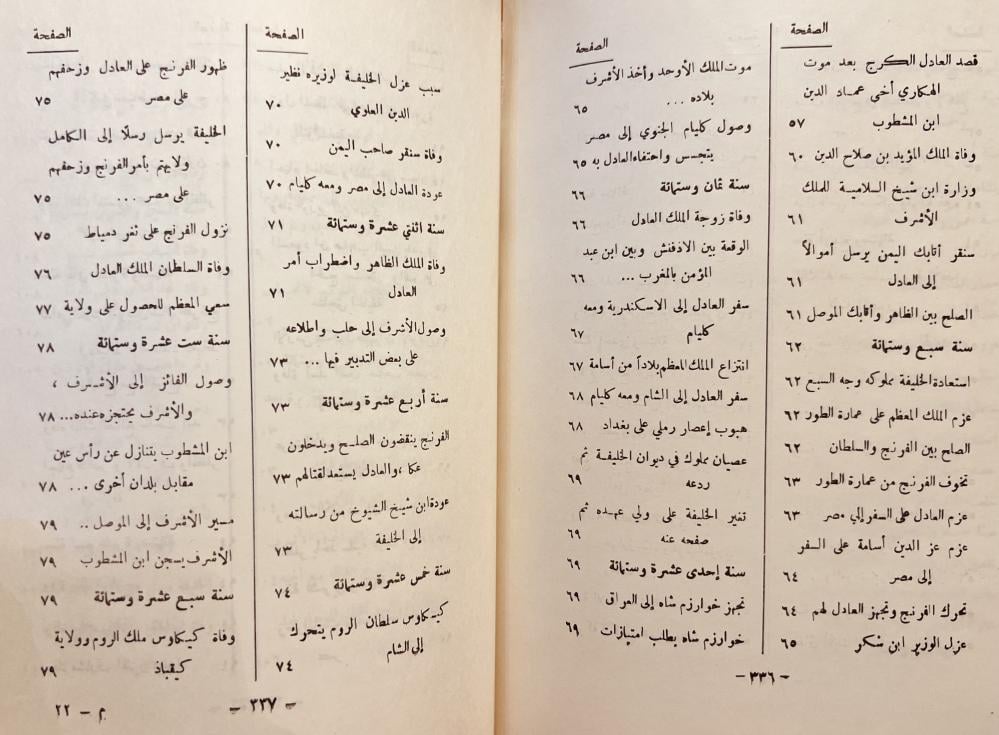 الصفحة
قصد العادل الكرج بعد موت
الهكاري أخي عماد الدين
ابن المشطوب ٥٧
وفاة الملك المؤيد بن صلاح الدين ٦٠
وزارة ابن شيخ السلامية للملك
الأشرف ٦١
سنقر أتابك اليمن يرسل أموالاً
إلى العادل ٦١
الصلح بين الظاهر وأتابك الموصل ٦١
سنة سبع وستمائة ٦٢
استعادة الخليفة مملوكه وجه السبع ٦٢
عزم الملك المعظم على عمارة الطور ٦٢
الصلح بين الفرنج والسلطان ٦٢
تخوف الفرنج من عمارة الطور ٦٣
عزم العادل على السفر إلي مصر ٦٣
عزم عز الدين أسامة على السفر
إلى مصر ٦٤
تحرك الفرنج وتجهز العادل لهم ٦٤
عزل الوزير ابن شكر ٦٥
الصفحة
موت الملك الأوحد وأخذ الأشرف
بلاده ... ٦٥
وصول كليام الجنوي إلى مصر
يتجسس واحتفاء العادل به ٦٥
سنة ثمان وستمائة ٦٦
وفاة زوجة الملك العادل ٦٦
الوقعة بين الاذفنش وبين ابن عبد
المؤمن بالمغرب ... ٦٦
سفر العادل إلى الاسكندرية ومعه
كليام ٦٧
انتزاع الملك المعظم بلاداً من أسامة ٦٧
سفر العادل إلى الشام ومعه كليام ٦٨
هبوب إعصار رملي على بغداد ٦٨
عصيان مملوك في ديوان الخليفة ثم
ردعه ٦٩
تغير الخليفة على ولي عهده ثم
صفحه عنه ٦٩
سنة إحدى عشرة وستمائة ٦٩
تجهز خوارزم شاه إلى العراق ٦٩
خوارزم شاه يطلب امتيازات ٦٩
– ٣٣٦ –
الصفحة
سبب عزل الخليفة لوزيره نظير
الدين العلوي ٧٠
وفاة سنقر صاحب اليمن ٧٠
عودة العادل إلى مصر ومعه كليام ٧٠
سنة اثنتي عشرة وستمائة ٧١
وفاة الملك الظاهر واضطراب أمر
العادل ٧١
وصول الأشرف إلى حلب واطلاعه
على بعض التدبير فيها ... ٧٣
سنة أربع عشرة وستمائة ٧٣
الفرنج ينقضون الصلح ويدخلون
عكا ، والعادل يستعد لقتالهم ٧٣
عودة ابن شيخ الشيوخ من رسالته
إلى الخليفة ٧٣
سنة خمس عشرة وستمائة ٧٤
كيكاوس سلطان الروم يتحرك
إلى الشام ٧٤
الصفحة
ظهور الفرنج على العادل وزحفهم
على مصر ٧٥
الخليفة يرسل رسلًا إلى الكامل
ولا يهتم بأمر الفرنج وزحفهم
على مصر ... ٧٥
نزول الفرنج على ثغر دمياط ٧٥
وفاة السلطان الملك العادل ٧٦
سعي المعظم للحصول على ولاية ٧٧
سنة ست عشرة وستمائة ٧٨
وصول الفائز إلى الأشرف ،
والأشرف يحتجزه عنده... ٧٨
ابن المشطوب يتنازل عن رأس عين
مقابل بلدان أخرى ... ٧٨
مسير الأشرف إلى الموصل .. ٧٩
الأشرف يسجن ابن المشطوب ٧٩
سنة سبع عشرة وستمائة ٧٩
وفاة كيكاوس ملك الروم وولاية
كيقباذ ٧٩
– ٣٣٧ –
م – ٢٢